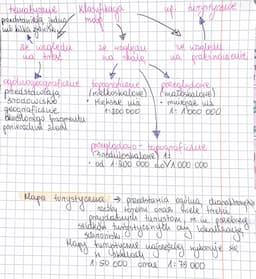 tematyczne Klasyfikacja np. turystyczne
przedstawiają jedną map
lub kilka
ze względu ze względu ze względu
na treść na skalę na przeznaczenie
ogólnogeograficzne topograficzne przeglądowe
przedstawiają (wielkoskalowe) (małoskalowe)
środowisko • większe niż • mniejsze niż
geograficzne 1:200 000 1:1 000 000
określonego fragmentu
powierzchni Ziemi
przeglądowo-topograficzne
(średnioskalowe)
• od 1:200 000 do 1:1 000 000
Mapa turystyczna → przedstawia ogólną
rzeźbę terenu oraz wiele treści
przydatnych turystom, m.in. przebieg
szlaków turystycznych czy lokalizację
schronisk
Mapy turystyczne najczęściej wykonuje się
w skalach
1:50 000 oraz 1:75 000